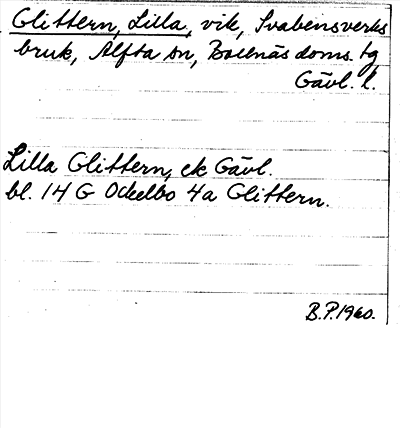 Glittern, Lilla, vik, Svabensverks
bruk, Alfta sn, Bollnäs doms. tg
Gävl. l.
Lilla Glittern, ek Gävl.
bl. 14 G Ockelbo 4a Glittern.
B.P. 1960.